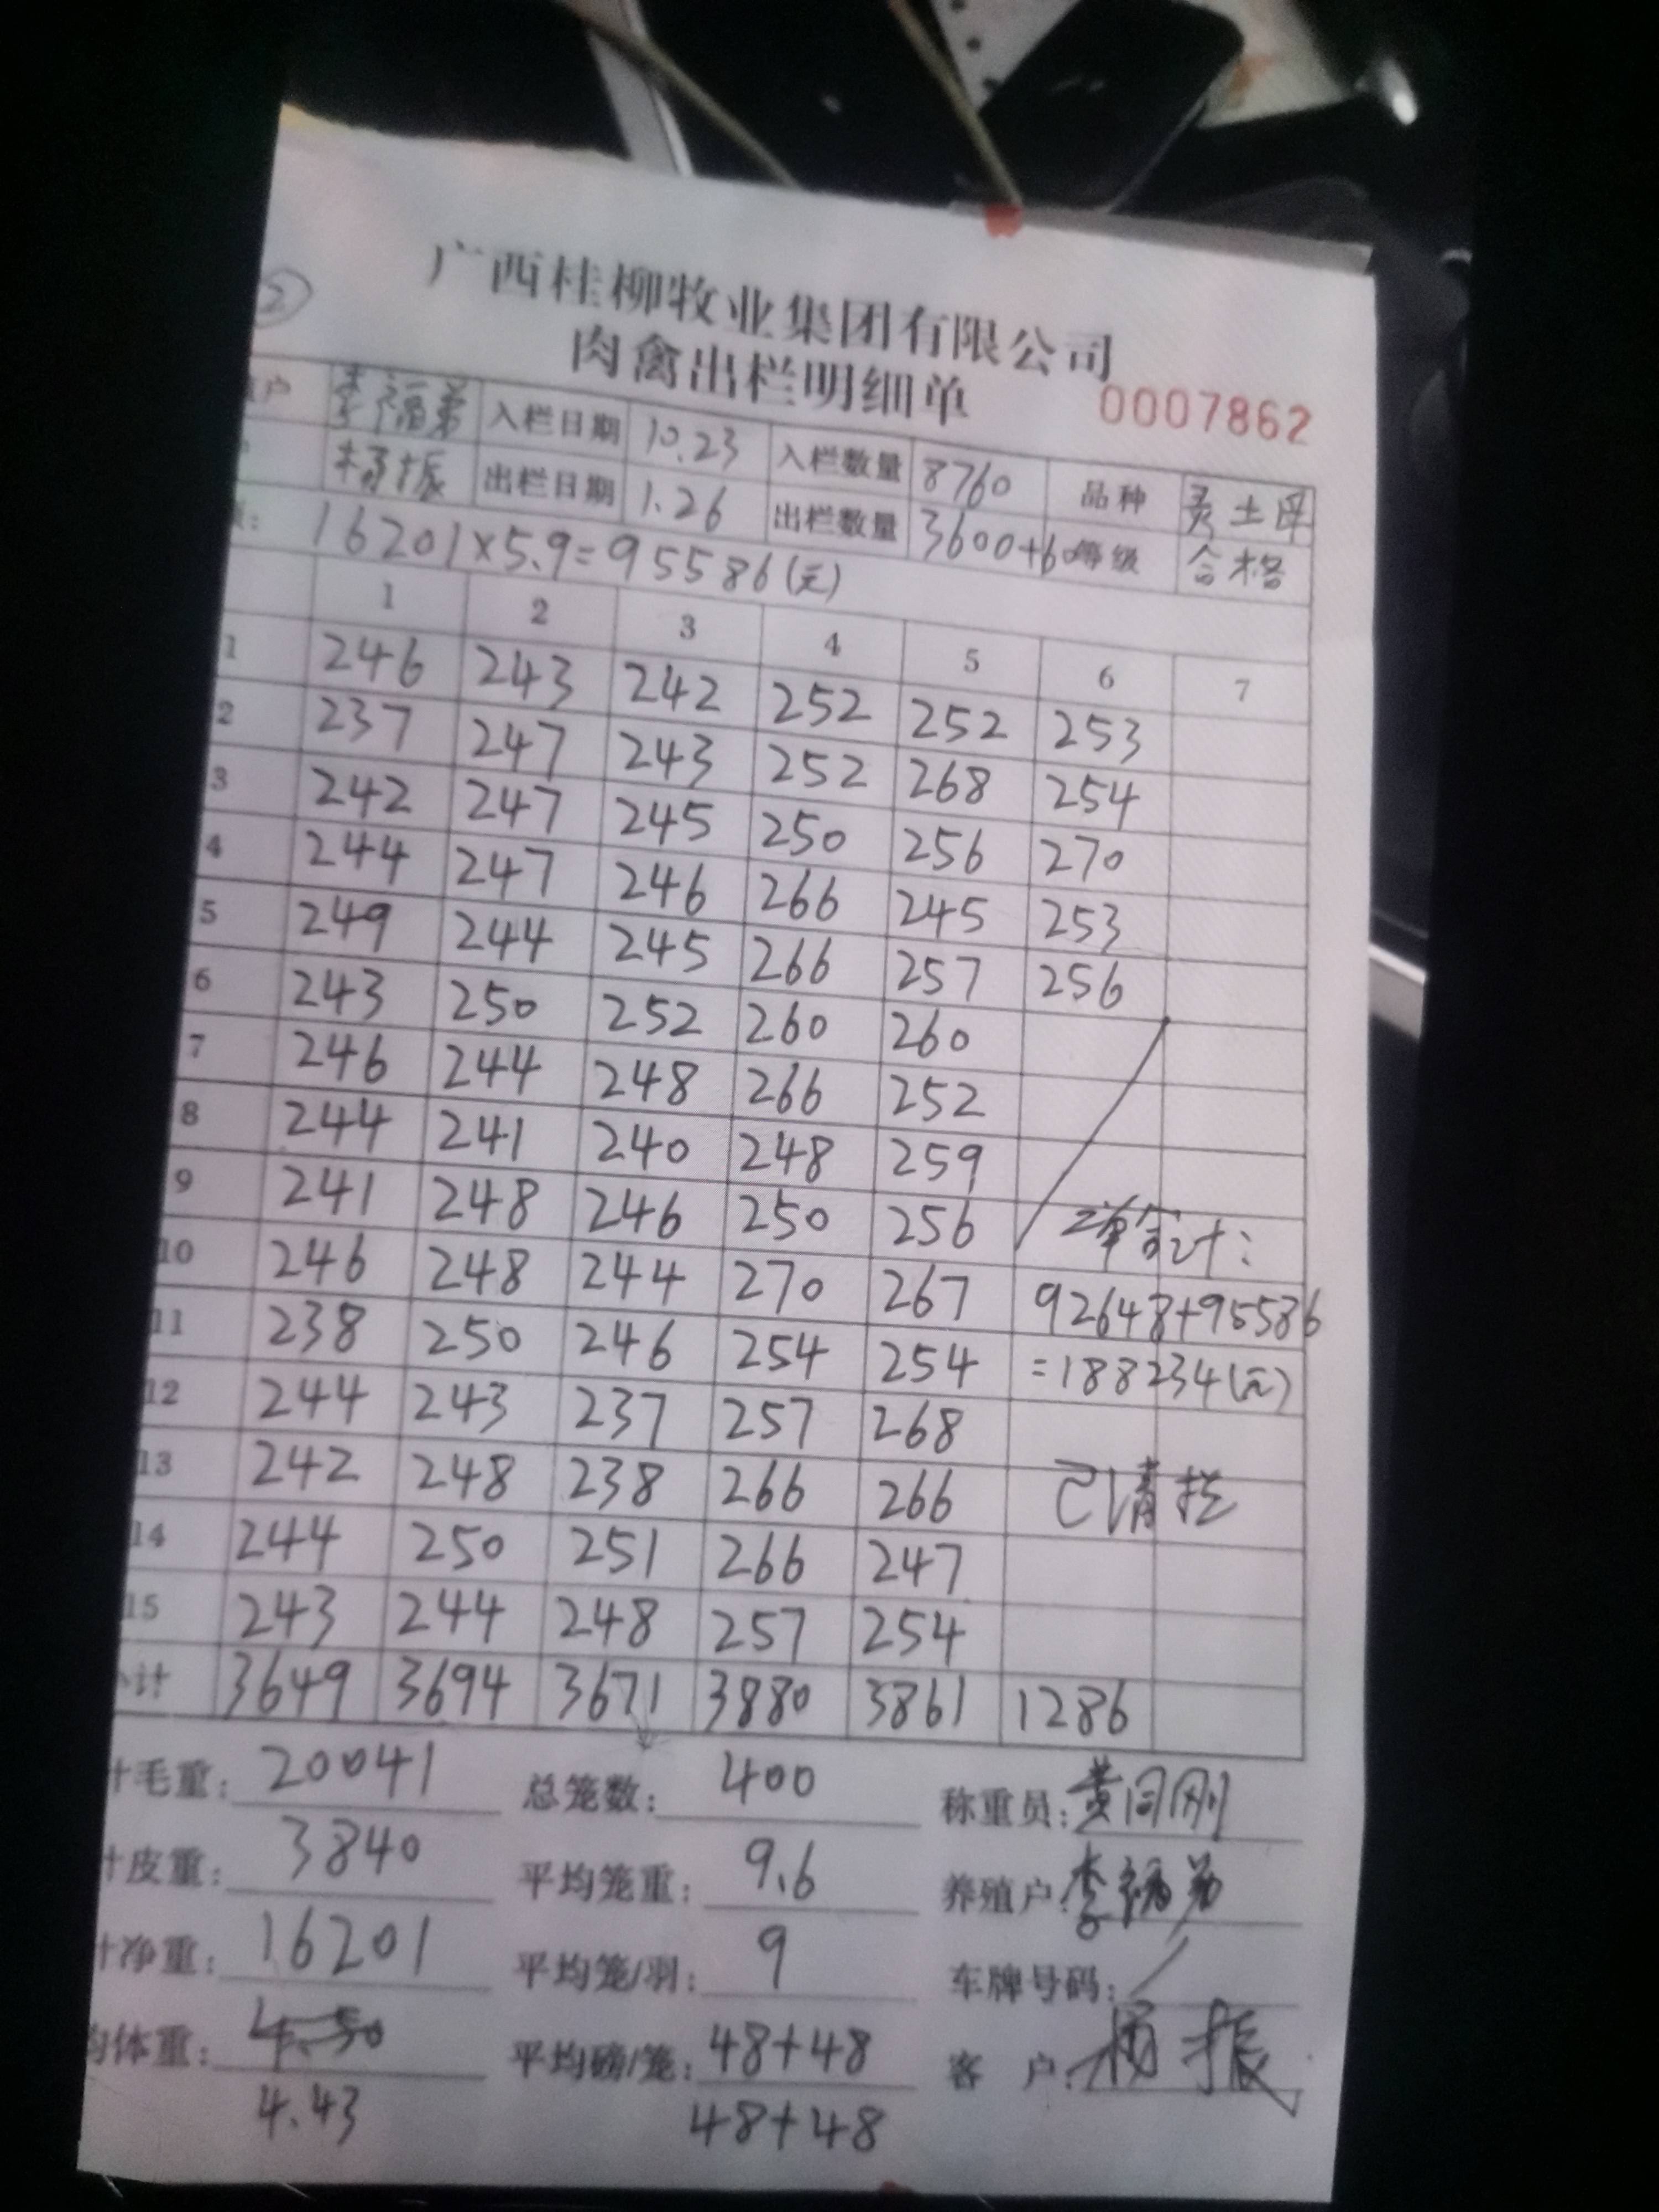 ②
广西桂柳牧业集团有限公司
肉禽出栏明细单
0007862
户 李福弟 入栏日期 10.23 入栏数量 8760 品种
杨振 出栏日期 1.26 出栏数量 3600+60 等级 合格
16201×5.9=95586(元)
1 2 3 4 5 6 7
1 246 243 242 252 252 253
2 237 247 243 252 268 254
3 242 247 245 250 256 270
4 244 247 246 266 245 253
5 249 244 245 266 257 256
6 243 250 252 260 260
7 246 244 248 266 252
8 244 241 240 248 259
9 241 248 246 250 256 2单合计:
10 246 248 244 270 267 92648+95586
11 238 250 246 254 254 =188234(元)
12 244 243 237 257 268
13 242 248 238 266 266 已清栏
14 244 250 251 266 247
15 243 244 248 257 254
计 3649 3694 3671 3880 3861 1286
计毛重: 20041 总笼数: 400 称重员:
计皮重: 3840 平均笼重: 9.6 养殖户: 李福弟
计净重: 16201 平均笼/羽: 9 车牌号码: /
均体重: 4.50 平均磅/笼: 48+48 客 户: 杨振
4.43 48+48